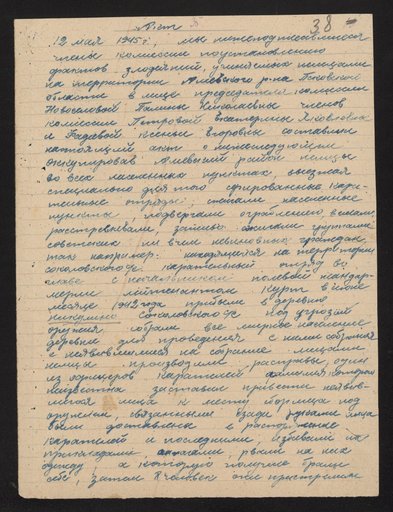 Акт
38
12 мая 1945 г. мы нижеподписавшиеся
члены комиссии по установлению
фактов злодеяний, учинённых немцами
на территории р-на Псковской
области в лице председателя комиссии
Новосёловой Галины Николаевны членов
комиссии Петровой Екатерины Яковлевны
и Ксении Егоровны составили
настоящий акт о нижеследующем
оккупировав район немцы
во всех населенных пунктах, высылая
специально для того сформированные кара-
тельные отряды, сжигали населенные
пункты, подвергали ограблению, вешали,
расстреливали, заживо сжигали группами
советских ни в чем неповинных граждан
так например: находящийся на территории
Соколовского с/с карательный отряд во
главе с начальником полевой жандар-
мерии лейтенантом Курт в июне
месяце 1942 года прибыли в деревню
Соколовского с/с под угрозой
оружия собрали все мирное население
деревни для проведения с ними собрания
с неявившимися на собрание лицами
немцы производили расправы, один
из офицеров карателей фамилия которого
неизвестна заставил привести неявив-
шихся лица к месту сборища под
оружием, связанными сзади руками лица
были доставлены в распоряжение
карателей и последними, избивали их
прикладами, рвали на них
одежду, а которую получше брали
себе, затем 8 человек они пристрелили